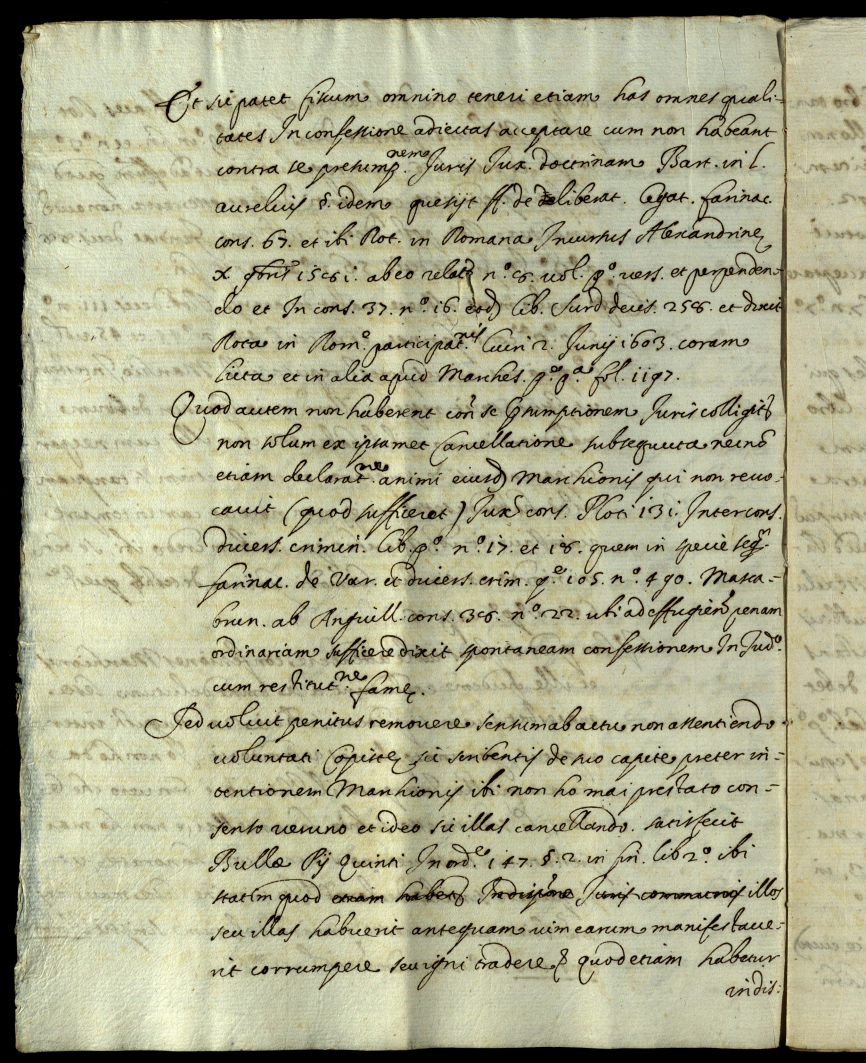 Et sic patet fiscum omnino teneri etiam has omnes quali-
tates In confessione adiectas acceptare cum non habeant
contra se presump.nem Juris Jux. doctrinam Bart. in l.
aurelius §. idem quesijt ff. de deliberat. legat. farinac.
cons. 67. et ibi Rot. in Romana Incursus Alexandrine
X 9bris 1561. ab eo relat. n.º 6. vol. p.º vers. et perpenden-
do et In cons. 37. n.º 16. eod lib. Surd decis. 258. et dixit
Rota in Rom.ª participat.nis 2. Junij 1603. coram
et in alia apud Marches. p.ª fol. 1197.
Quod autem non haberent con se presumptionem Juris colligit
non solum ex ipsamet Cancellatione subsequuta necnō
etiam declarat.ne animi eiusd Marchionis qui non revo-
cavit (quod sufficeret) Jux cons. Ploti 131. Inter cons.
divers. crimin. lib. p.º n.º 17. et 18. quem in specie seq.r
farinac. de Var. et divers. crim. q.e 105. n.º 490. Masca-
brun. ab Anguill. cons. 36. n.º 22. ubi ad effugien penam
ordinariam sufficere dixit spontaneam confessionem In Jud.º
cum restitut.ne fame.
Sed voluit penitus removere sensum ab actu non assentiendo
voluntati Copiste sic scribentis de suo capite preter in-
tentionem Marchionis ibi non ho mai prestato con-
senso veruno et ideo sic illas cancellando. satisfecit
Bullæ Pij Quinti In ord.e 147. §. 2. in fin. lib 2.º ibi
statim quod etiam habet In disp.ne Juris communis illos
seu illas habuerit antequam vim earum manifestave-
rit corrumpere seu igni tradere & quod etiam habetur
in dis: